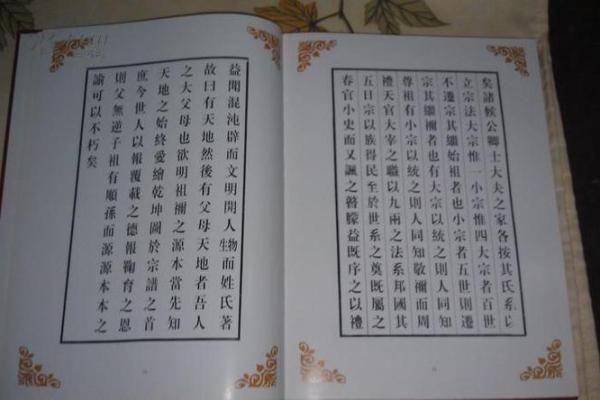 矣諸候公卿士大夫之家各按其氏系以
立宗法大宗惟一小宗惟四大宗者百世
不遷宗其繼始祖者也小宗者五世則遷
宗其繼禰者也有大宗以統之則人同知
尊祖有小宗以統之則人同知敬禰而周
禮天官大宰之職以九兩之法系邦國其
五曰宗以族得民至於世系之奠既屬之
春官小史而又諷之瞽矇益既序之以禮
益聞混沌辟而文明開人物生而姓氏著
故曰有天地然後有父母天地者吾人
之大父母也欲明祖禰之源本當先知
天地之始終爰繪乾坤圖於宗譜之首
庶今世人以報覆載之德報鞠育之恩
則父無逆子祖有順孫而源源本本之
諭可以不朽矣